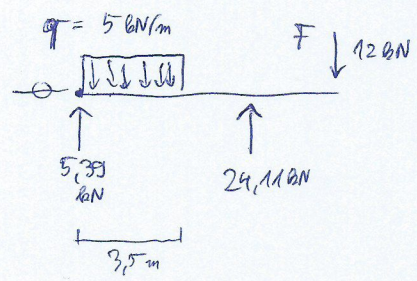 q = 5 kN/m
F
12 kN
5,39
kN
24,11 kN
3,5 m